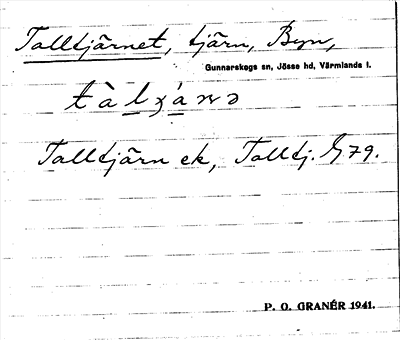 Talltjärnet, tjärn, Byn,
Gunnarskogs sn, Jösse hd, Värmlands l.
Talltjärn ek, Talltj. G79.
P. O. GRANÉR 1941.